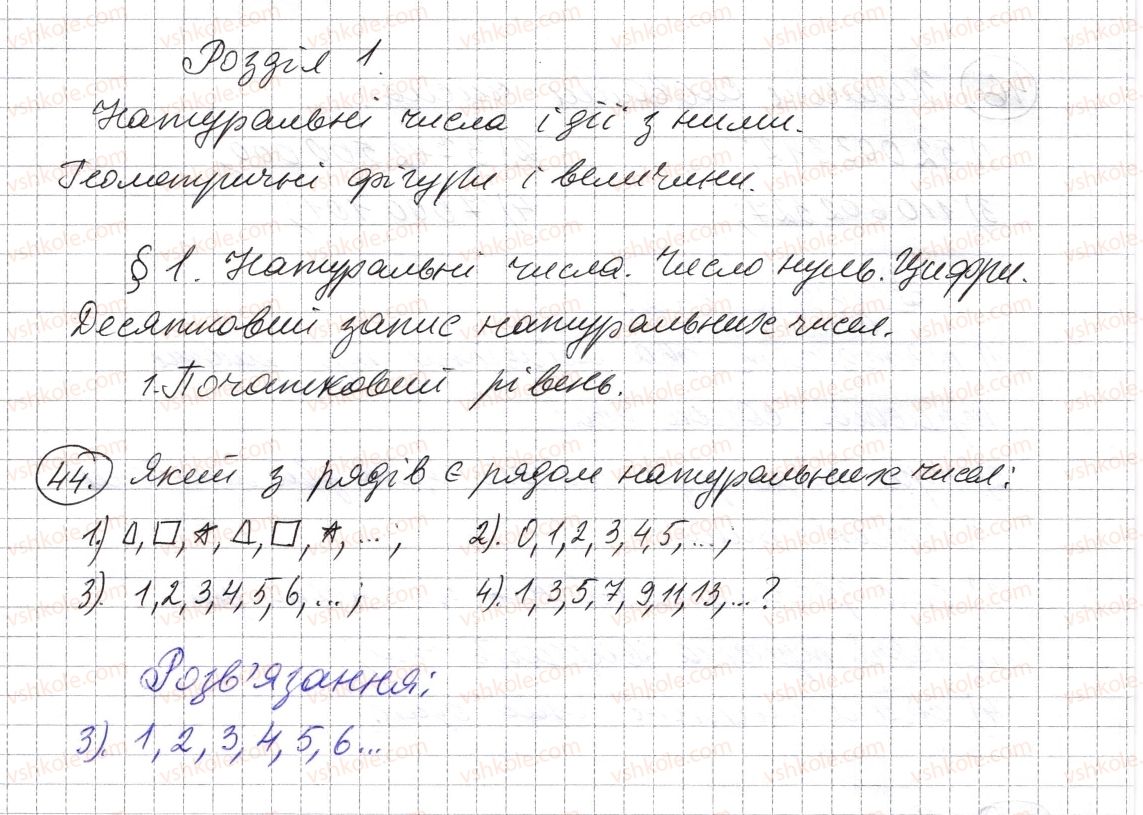 Розділ 1.
Натуральні числа і дії з ними.
Геометричні фігури і величини.
§ 1. Натуральні числа. Число нуль. Цифри.
Десятковий запис натуральних чисел.
1. Початковий рівень.
44. Який з рядів є рядом натуральних чисел:
1). △, □, ☆, △, □, ☆, ...; 2). 0, 1, 2, 3, 4, 5, ...;
3). 1, 2, 3, 4, 5, 6, ...; 4). 1, 3, 5, 7, 9, 11, 13, ...?
Розв'язання:
3). 1, 2, 3, 4, 5, 6...
vshkole.com